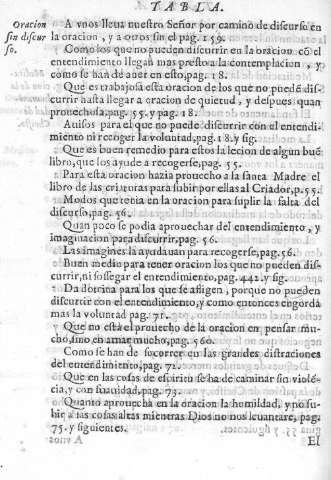 TABLA.
Oracion
sin discur
so.
A vnos lleua nuestro Señor por camino de discurso en
la oracion, y a otros sin el pag. 159.
Como los que no pueden discurrir en la oracion cõ el
entendimiento llegan mas presto a la contemplacion, y
como se han de auer en esto, pag. 18.
Que es trabajosa esta oracion de los que no puedẽ discu
rrir hasta llegar a oracion de quietud, y despues quan
prouechosa, pag. 55. y pag. 18.
Auisos para el que no puede discurrir con el entendi-
miento ni recoger la voluntad, pag. 18. y sig.
Que es buen remedio para estos la lecion de algun buẽ
libro, que los ayude a recogerse, pag. 55.
Para esta oracion hazia prouecho a la santa Madre el
libro de las criaturas para subir por ellas al Criador, p. 55.
Modos que tenia en la oracion para suplir la falta del
discurso, pag. 56.
Quan poco se podia aprouechar del entendimiento, y
imaginacion para discurrir, pag. 56.
Las imagines la ayudauan para recogerse, pag. 56.
Buen medio para tener oracion los que no pueden dis-
currir, ni sossegar el entendimiento, pag. 442. y sig.
Da dotrina para los que se afligen, porque no pueden
discurrir con el entendimiento, y como entonces engorda
mas la voluntad pag. 71.
Que no està el prouecho de la oracion en pensar mu-
cho, sino en amar mucho, pag. 560.
Como se han de socorrer en las grandes distraciones
del entendimiento, pag. 72.
Que en las cosas de espiritu se ha de caminar sin violẽ-
cia, y con suauidad, pag. 73.
Quanto aprouecha en la oracion la humildad, y no su-
bir a las cosas altas mientras Dios no nos leuantare, pag.
75. y siguientes.
El